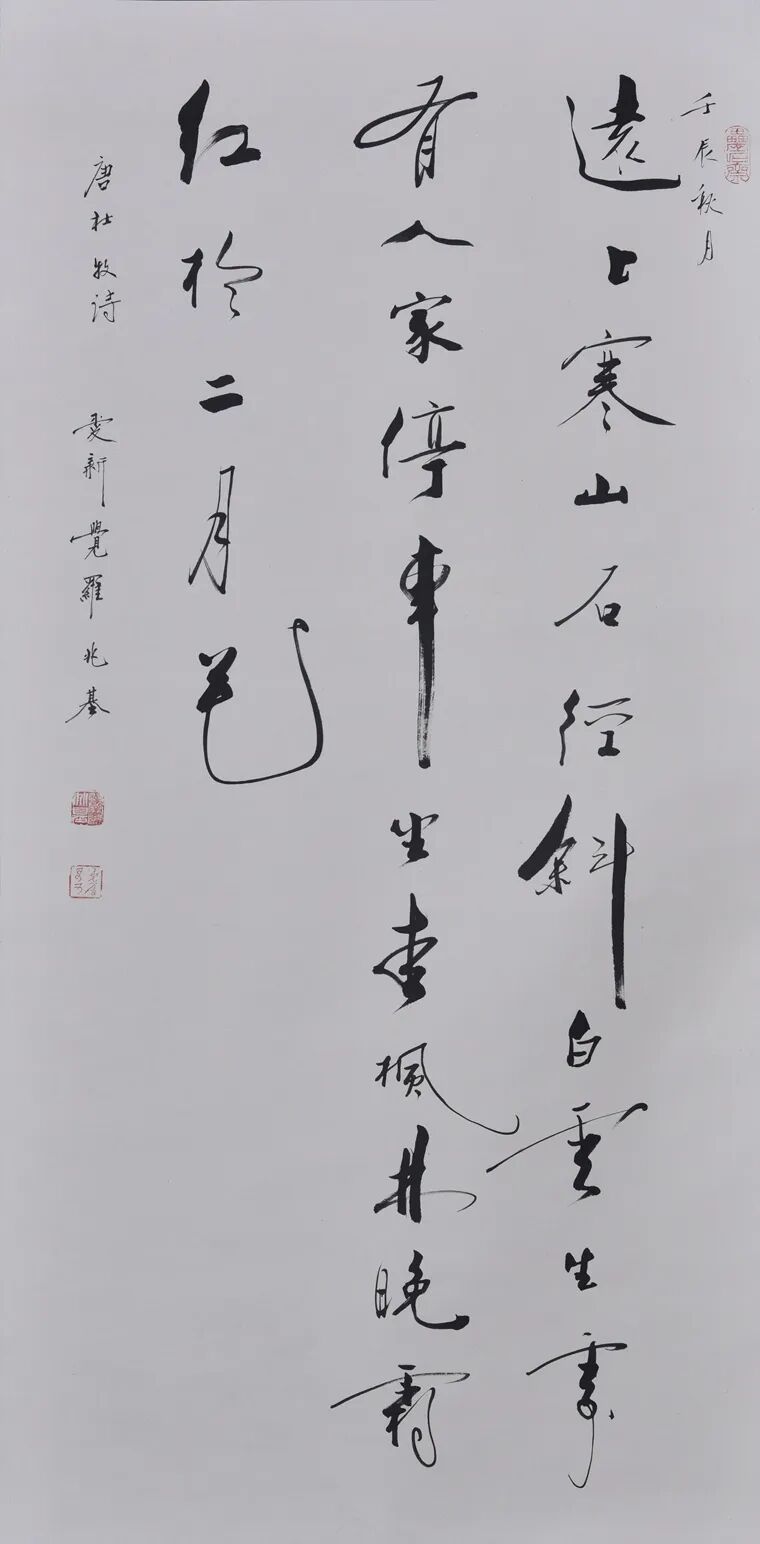 壬辰秋月
遠上寒山石徑斜白雲生處
有人家停車坐愛楓林晚霜
红於二月花
唐杜牧诗 愛新覺羅兆基